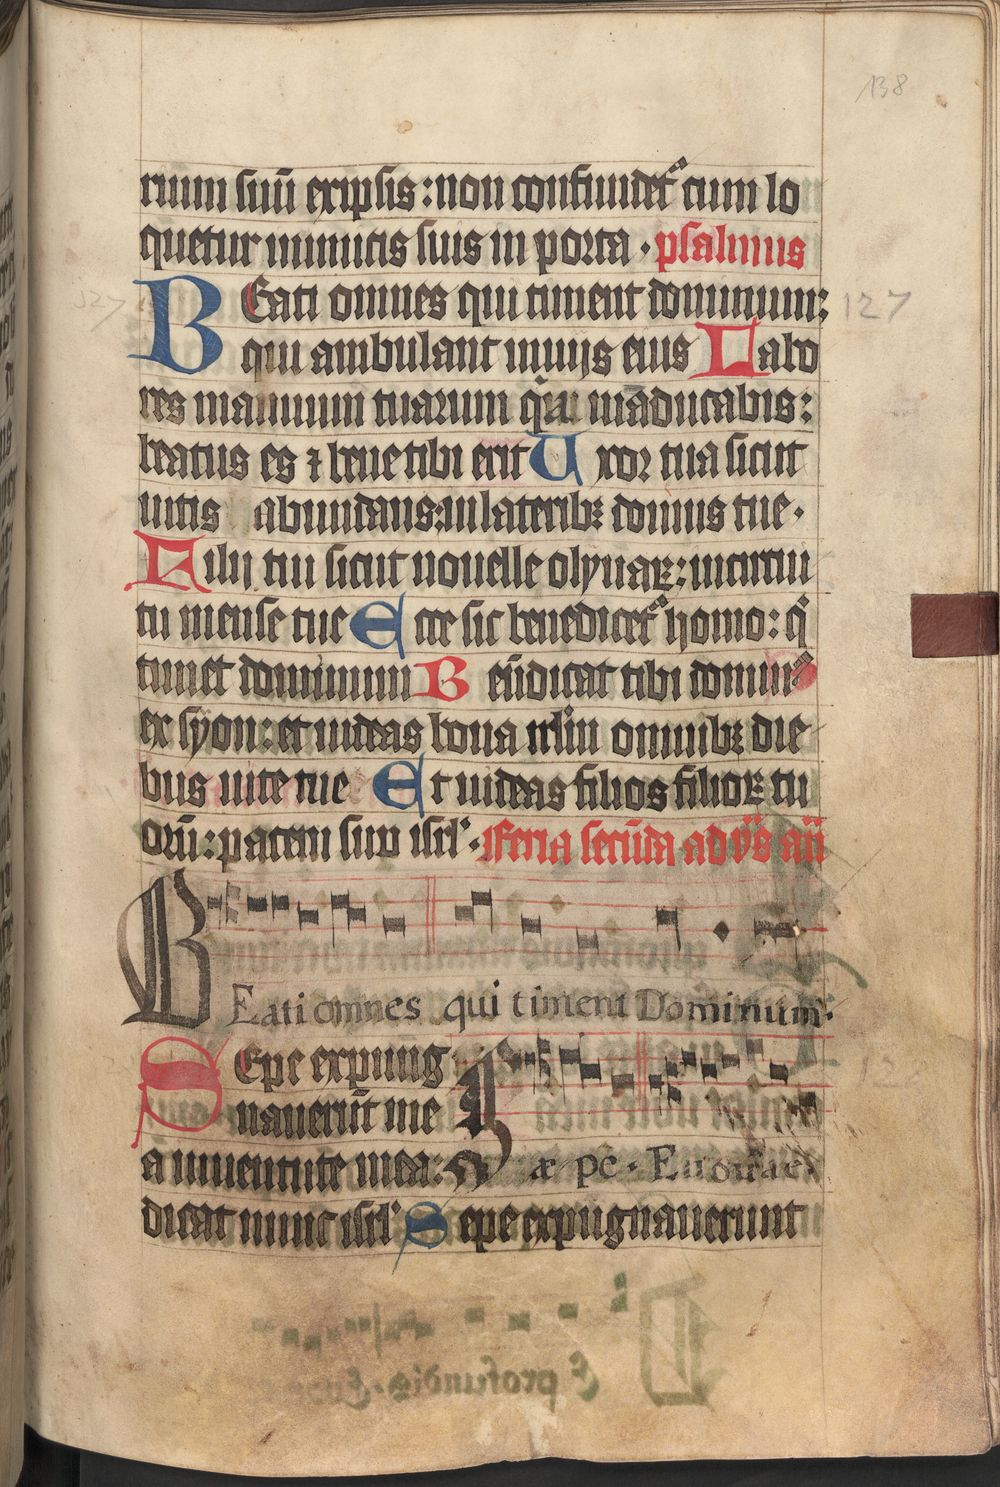 138
rium suū ex ipsis: non confundet᷑ cum lo
quetur inimicis suis in porta · psalmus
BEati omnes qui timent dominum: 127
qui ambulant in uijs eius Labo
res manuum tuarum q̄a māducabis:
beatus es ⁊ bene tibi erit Uxor tua sicut
uitis abundans: in laterib⁊ domus tue.
Filij tui sicut nouelle olyuaꝝ: in circui
tu mense tue Ecce sic benedicet᷑ homo: q̇
timet dominum Beñdicat tibi domin⁹
ex syon: et uideas bona irlm̄ omnib⁊ die
bus uite tue Et uideas filios filioꝝ tu
orū: pacem sup isrl᷑. Feria secūda ad v̄s añ
BEati omnes qui timent Dominum:
SEpe expug
nauerūt me
a iuuentute mea: Sæpe. Euouae.
dicat nunc isrl᷑ Sepe expugnauerunt